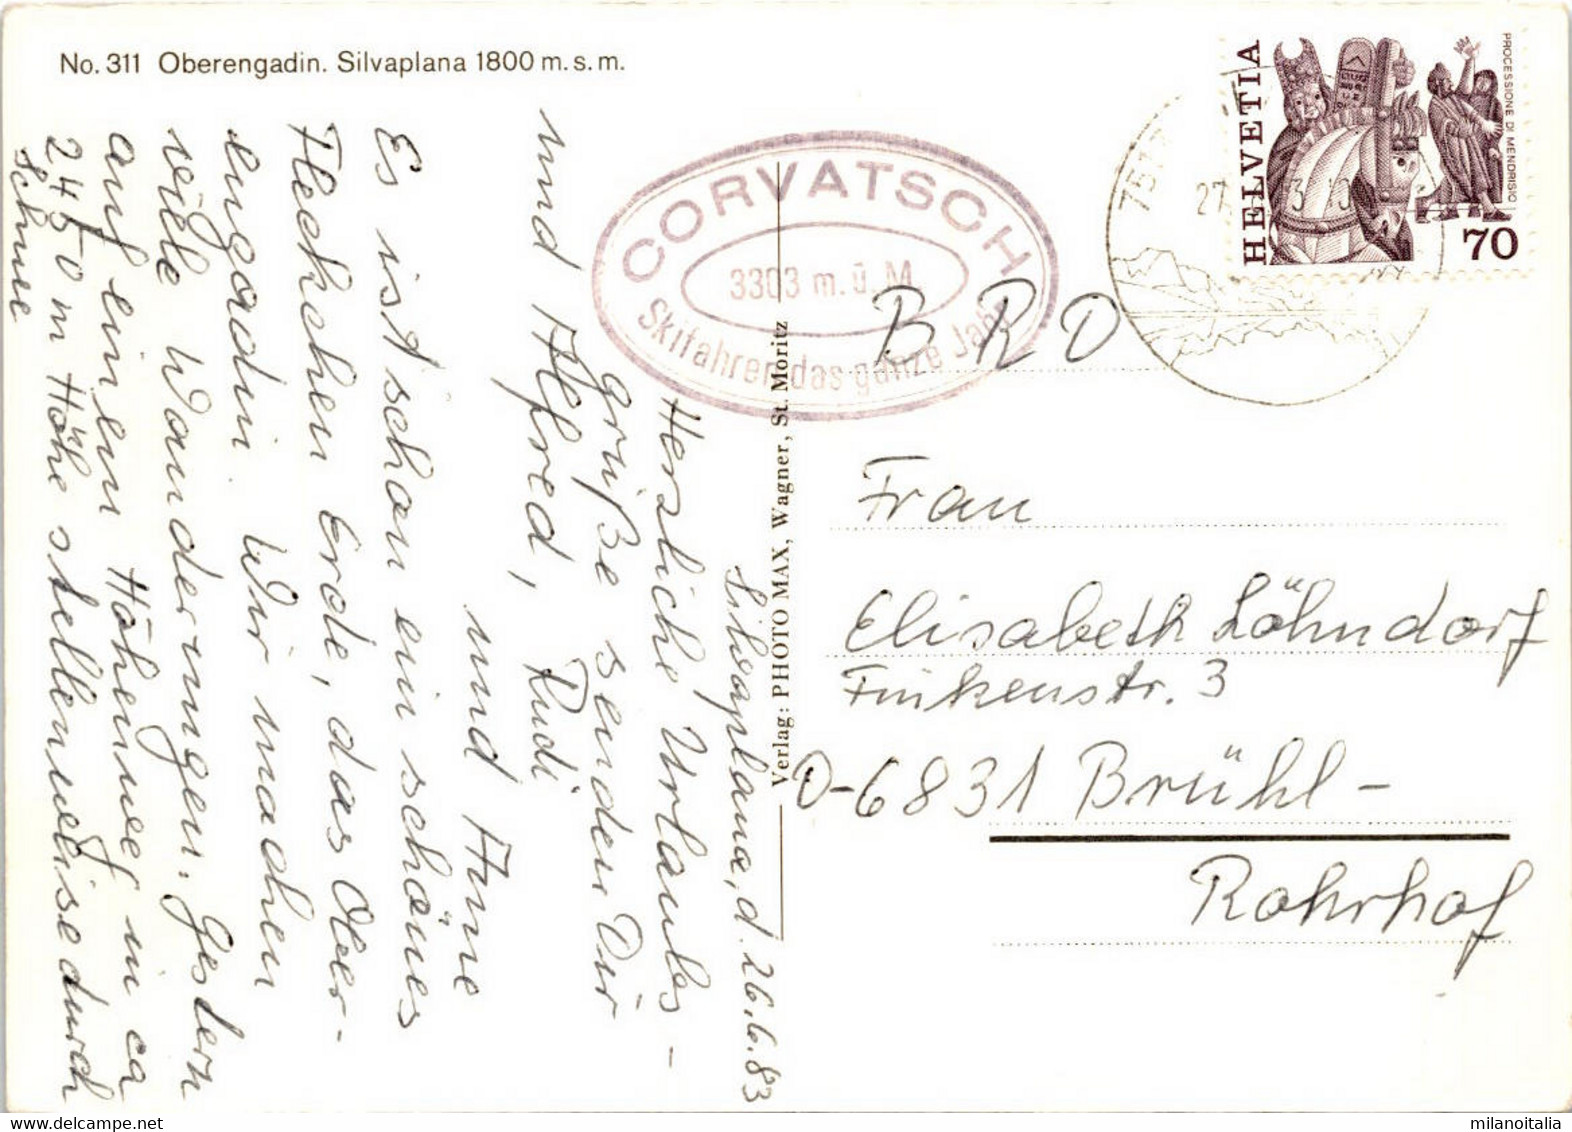 No. 311 Oberengadin. Silvaplana 1800 m. s. m.
CORVATSCH
3303 m. ü. M.
Skifahren das ganze Jahr
HELVETIA
PROCESSIONE DI MENDRISIO
70
Verlag: PHOTO MAX, Wagner, St. Moritz
Silvaplana, d. 26.6.83
Herzliche Urlaubs-
grüße senden Dir
und Alfred, Rudi
und Anne
Es ist schon ein schönes
Fleckchen Erde, das Ober-
engadin. Wir machen
viele Wanderungen. Gestern
auf einem Höhenweg in ca
2450 m Höhe stellenweise durch
Schnee
BRD
Frau
Elisabeth Löhndorf
Finkenstr. 3
D-6831 Brühl-
Rohrhof
milanoitalia